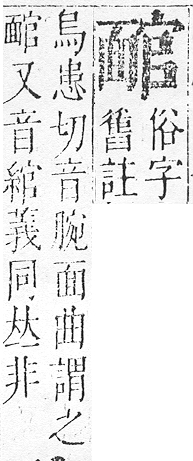 䩊
俗字
舊註
烏患切音腕面曲謂之
䩊又音綰義同𠀤非